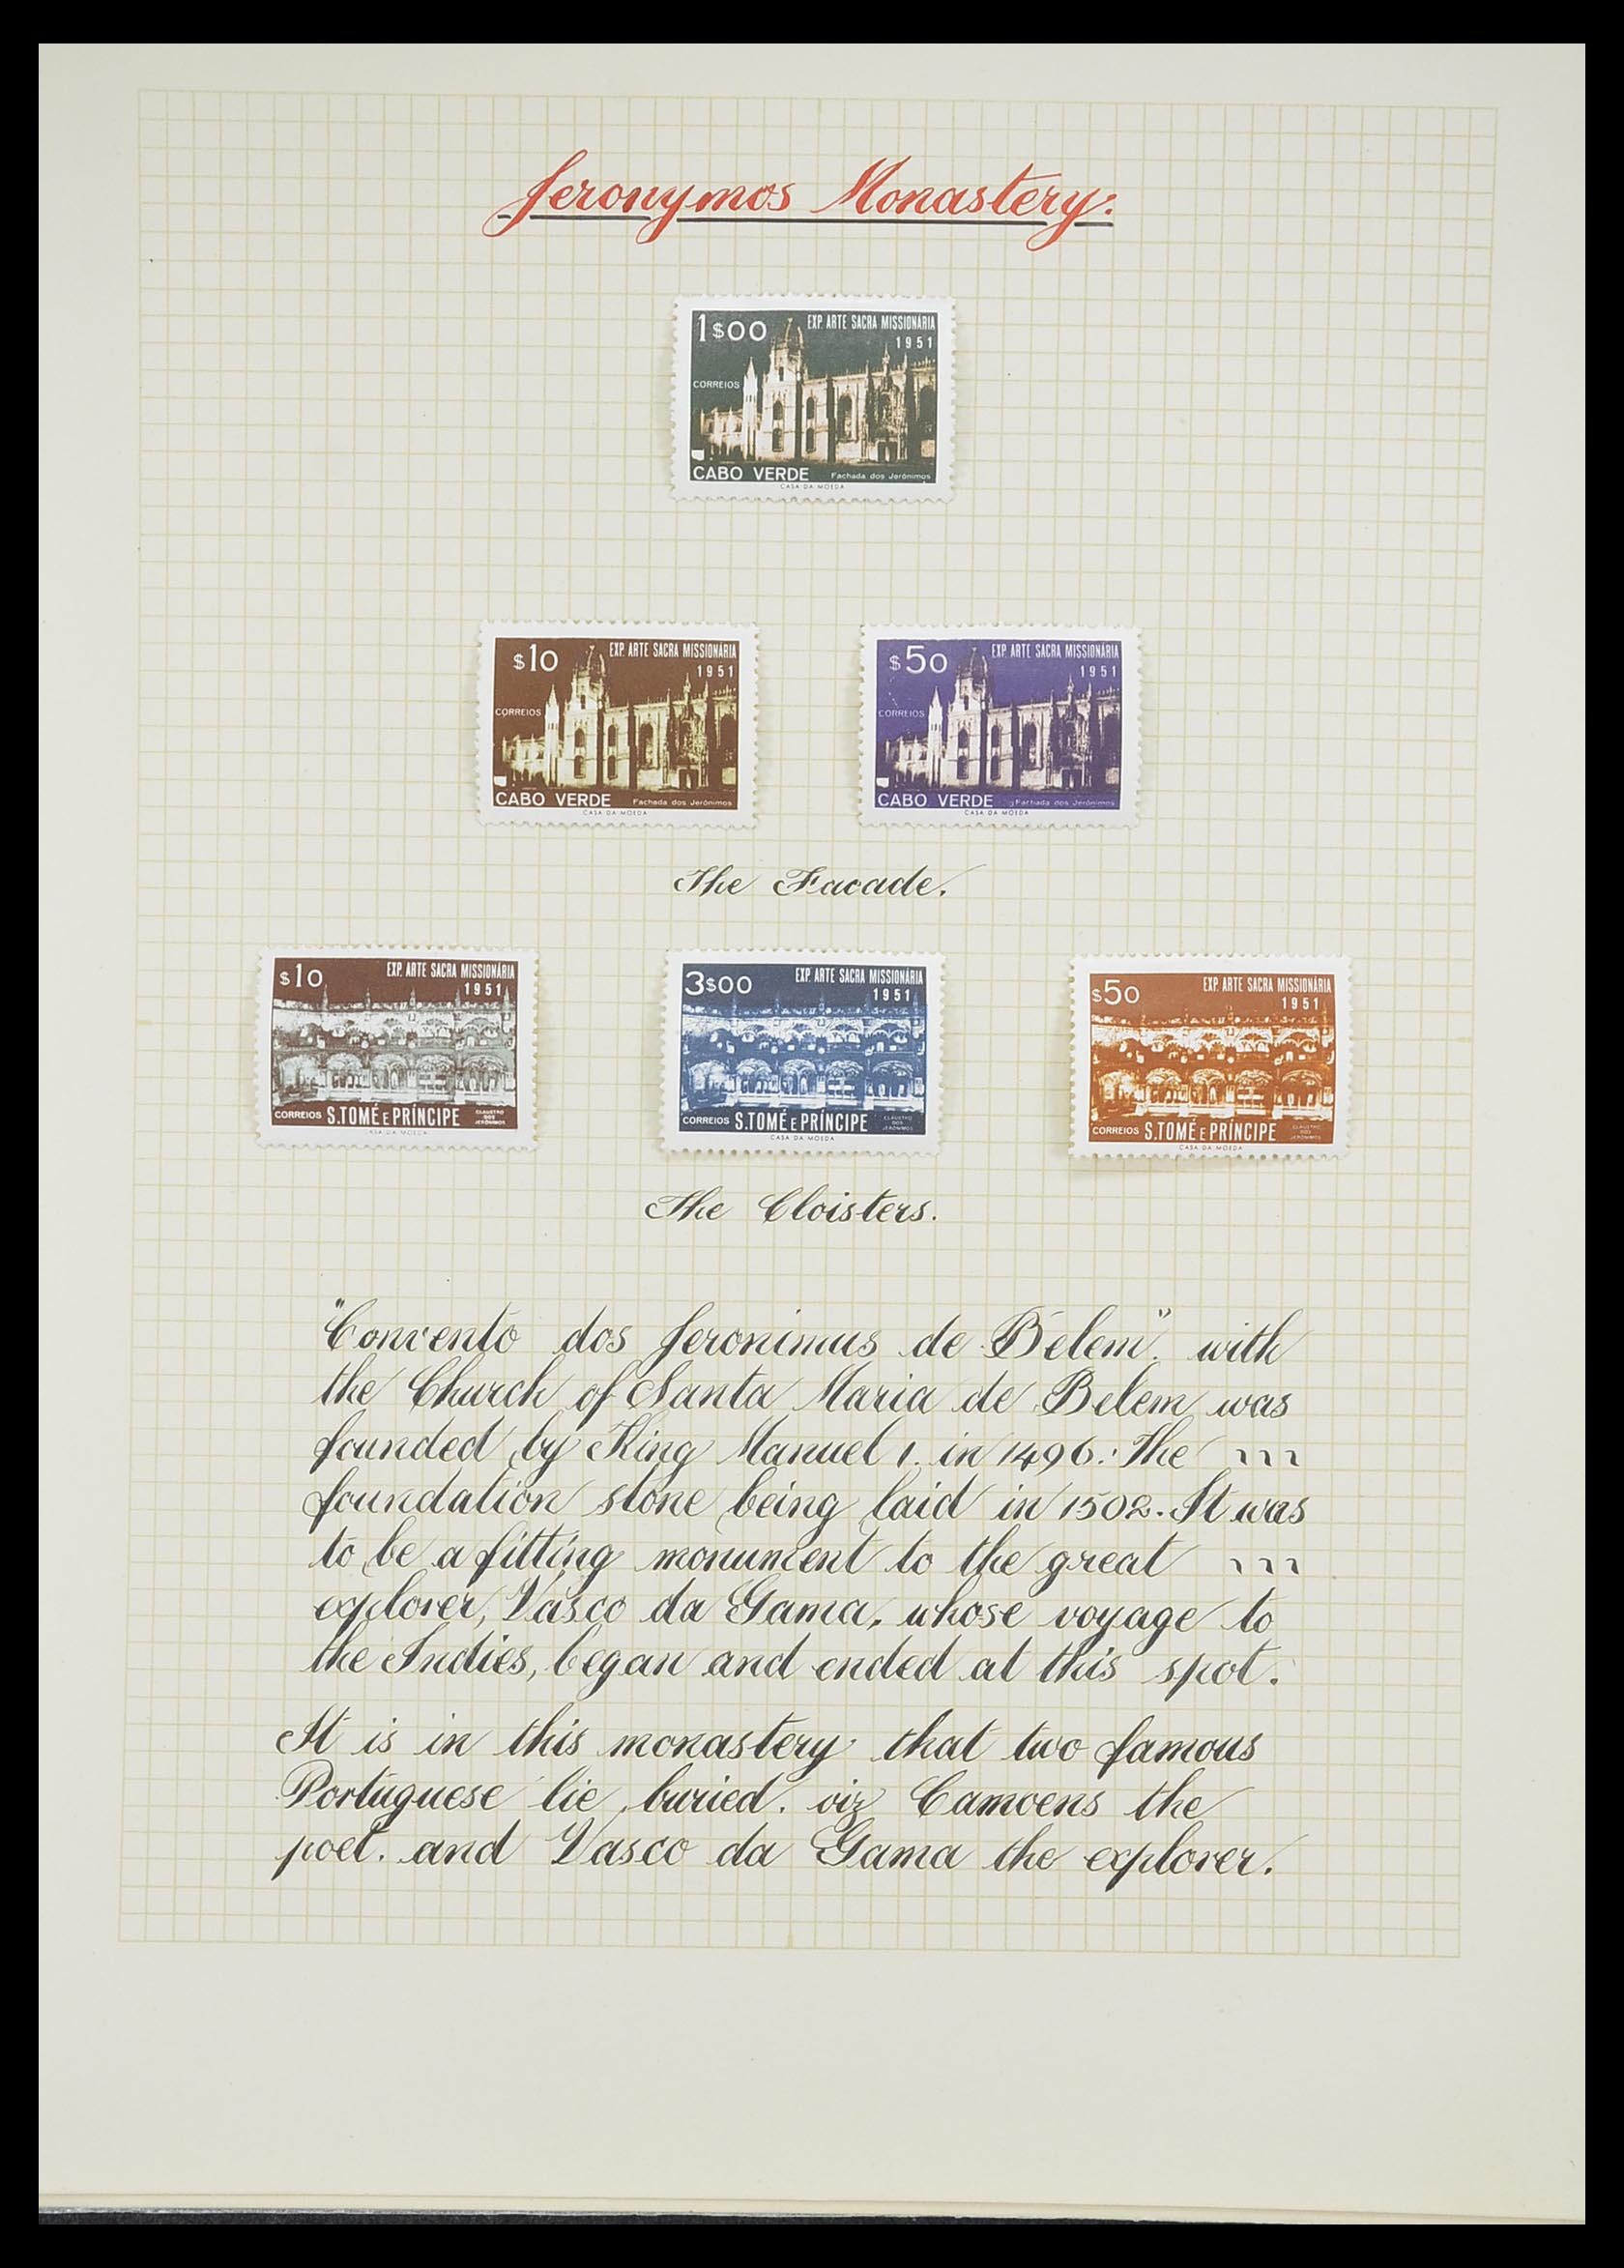 Jeronymos Monastery.
1$00 EXP. ARTE SACRA MISSIONÁRIA
1951
CORREIOS
CABO VERDE Fachada dos Jerónimos
CASA DA MOEDA
$10 EXP. ARTE SACRA MISSIONÁRIA
1951
CORREIOS
CABO VERDE Fachada dos Jerónimos
CASA DA MOEDA
$50 EXP. ARTE SACRA MISSIONÁRIA
1951
CORREIOS
CABO VERDE Fachada dos Jerónimos
CASA DA MOEDA
The Facade.
$10 EXP. ARTE SACRA MISSIONÁRIA
1951
CORREIOS S.TOMÉ E PRÍNCIPE CLAUSTRO DOS JERÓNIMOS
CASA DA MOEDA
3$00 EXP. ARTE SACRA MISSIONÁRIA
1951
CORREIOS S.TOMÉ E PRÍNCIPE CLAUSTRO DOS JERÓNIMOS
CASA DA MOEDA
$50 EXP. ARTE SACRA MISSIONÁRIA
1951
CORREIOS S.TOMÉ E PRÍNCIPE CLAUSTRO DOS JERÓNIMOS
CASA DA MOEDA
The Cloisters.
"Convento dos Jeronimus de Belem". with
the Church of Santa Maria de Belem was
founded by King Manuel 1. in 1496. The
foundation stone being laid in 1502. It was
to be a fitting monument to the great
explorer, Vasco da Gama, whose voyage to
the Indies, began and ended at this spot.
It is in this monastery that two famous
Portuguese lie buried. viz Camoens the
poet. and Vasco da Gama the explorer.